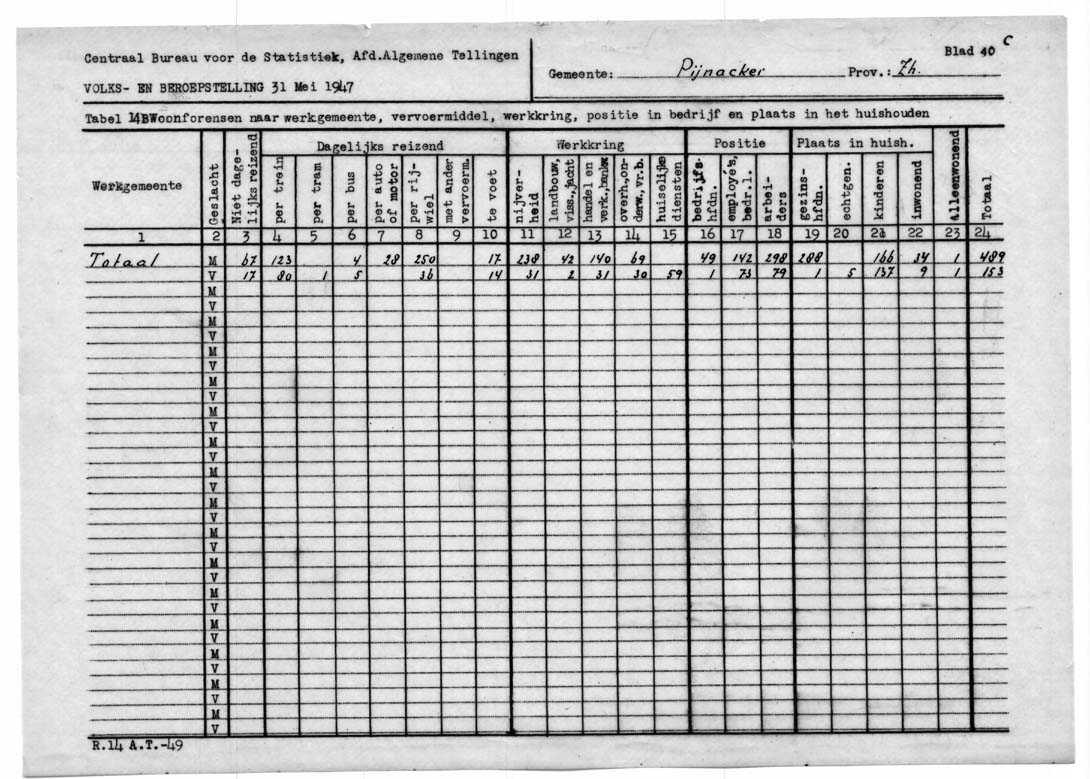 Centraal Bureau voor de Statistiek, Afd.Algemene Tellingen
VOLKS- EN BEROEPSTELLING 31 Mei 1947
Gemeente: Pijnacker Prov.: Zh.
Blad 40 c
Tabel 14B Woonforensen naar werkgemeente, vervoermiddel, werkkring, positie in bedrijf en plaats in het huishouden
Dagelijks reizend Werkkring Positie Plaats in huish.
Werkgemeente Geslacht Niet dage-lijks reizend per trein per tram per bus per auto of motor per rij-wiel met ander vervoerm. te voet nijver-heid landbouw, viss.,jacht handel en verk.,bankw overh.,on-derw.,vr.b. huiselijke diensten bedrijfs-hfdn. employé's, bedr.l. arbei-ders gezins-hfdn. echtgen. kinderen inwonend alleenwonend Totaal
1 2 3 4 5 6 7 8 9 10 11 12 13 14 15 16 17 18 19 20 21 22 23 24
Totaal M 67 123 4 28 250 17 238 42 140 69 49 142 298 288 166 34 1 489
V 17 80 1 5 36 14 31 2 31 30 59 1 73 79 1 5 137 9 1 153
M
V
M
V
M
V
M
V
M
V
M
V
M
V
M
V
M
V
M
V
M
V
M
V
M
V
M
V
M
V
R.14 A.T.-49